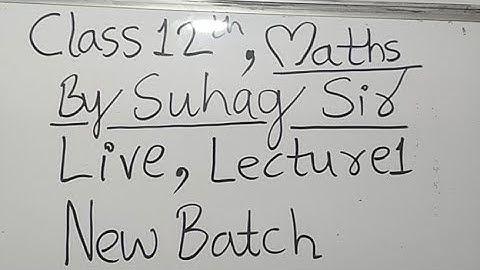 Class 12th, Maths
By Suhag Sir
Live, Lecture1
New Batch